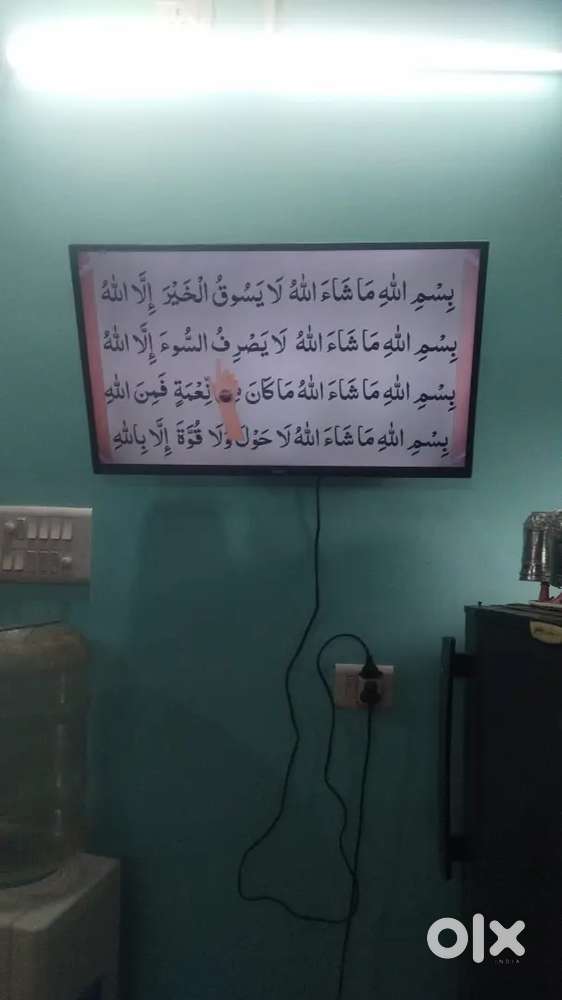 بِسْمِ اللهِ مَا شَاءَ اللهُ لَا يَسُوقُ الْخَيْرَ إِلَّا اللهُ
بِسْمِ اللهِ مَا شَاءَ اللهُ لَا يَصْرِفُ السُّوءَ إِلَّا اللهُ
بِسْمِ اللهِ مَا شَاءَ اللهُ مَا كَانَ نِّعْمَةٍ فَمِنَ اللهِ
بِسْمِ اللهِ مَا شَاءَ اللهُ لَا حَوْلَ وَلَا قُوَّةَ إِلَّا بِاللهِ
olx
INDIA